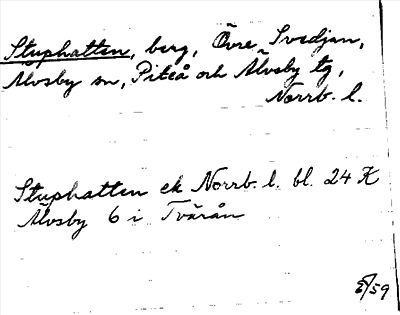 Stuphatten, berg, Övre Svedjan,
Älvsby sn, Piteå och Älvsby tg,
Norrb. l.
Stuphatten ek Norrb. l. bl. 24 K
Älvsby 6 i Tvärån
/59